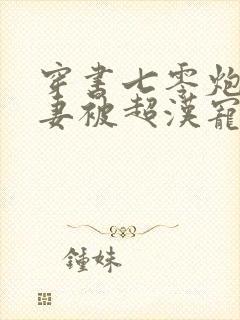 穿书七零炮
妻被超漢寵
鍾妹